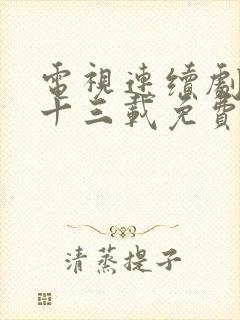 電視連續劇
十三載免費
清蒸提子